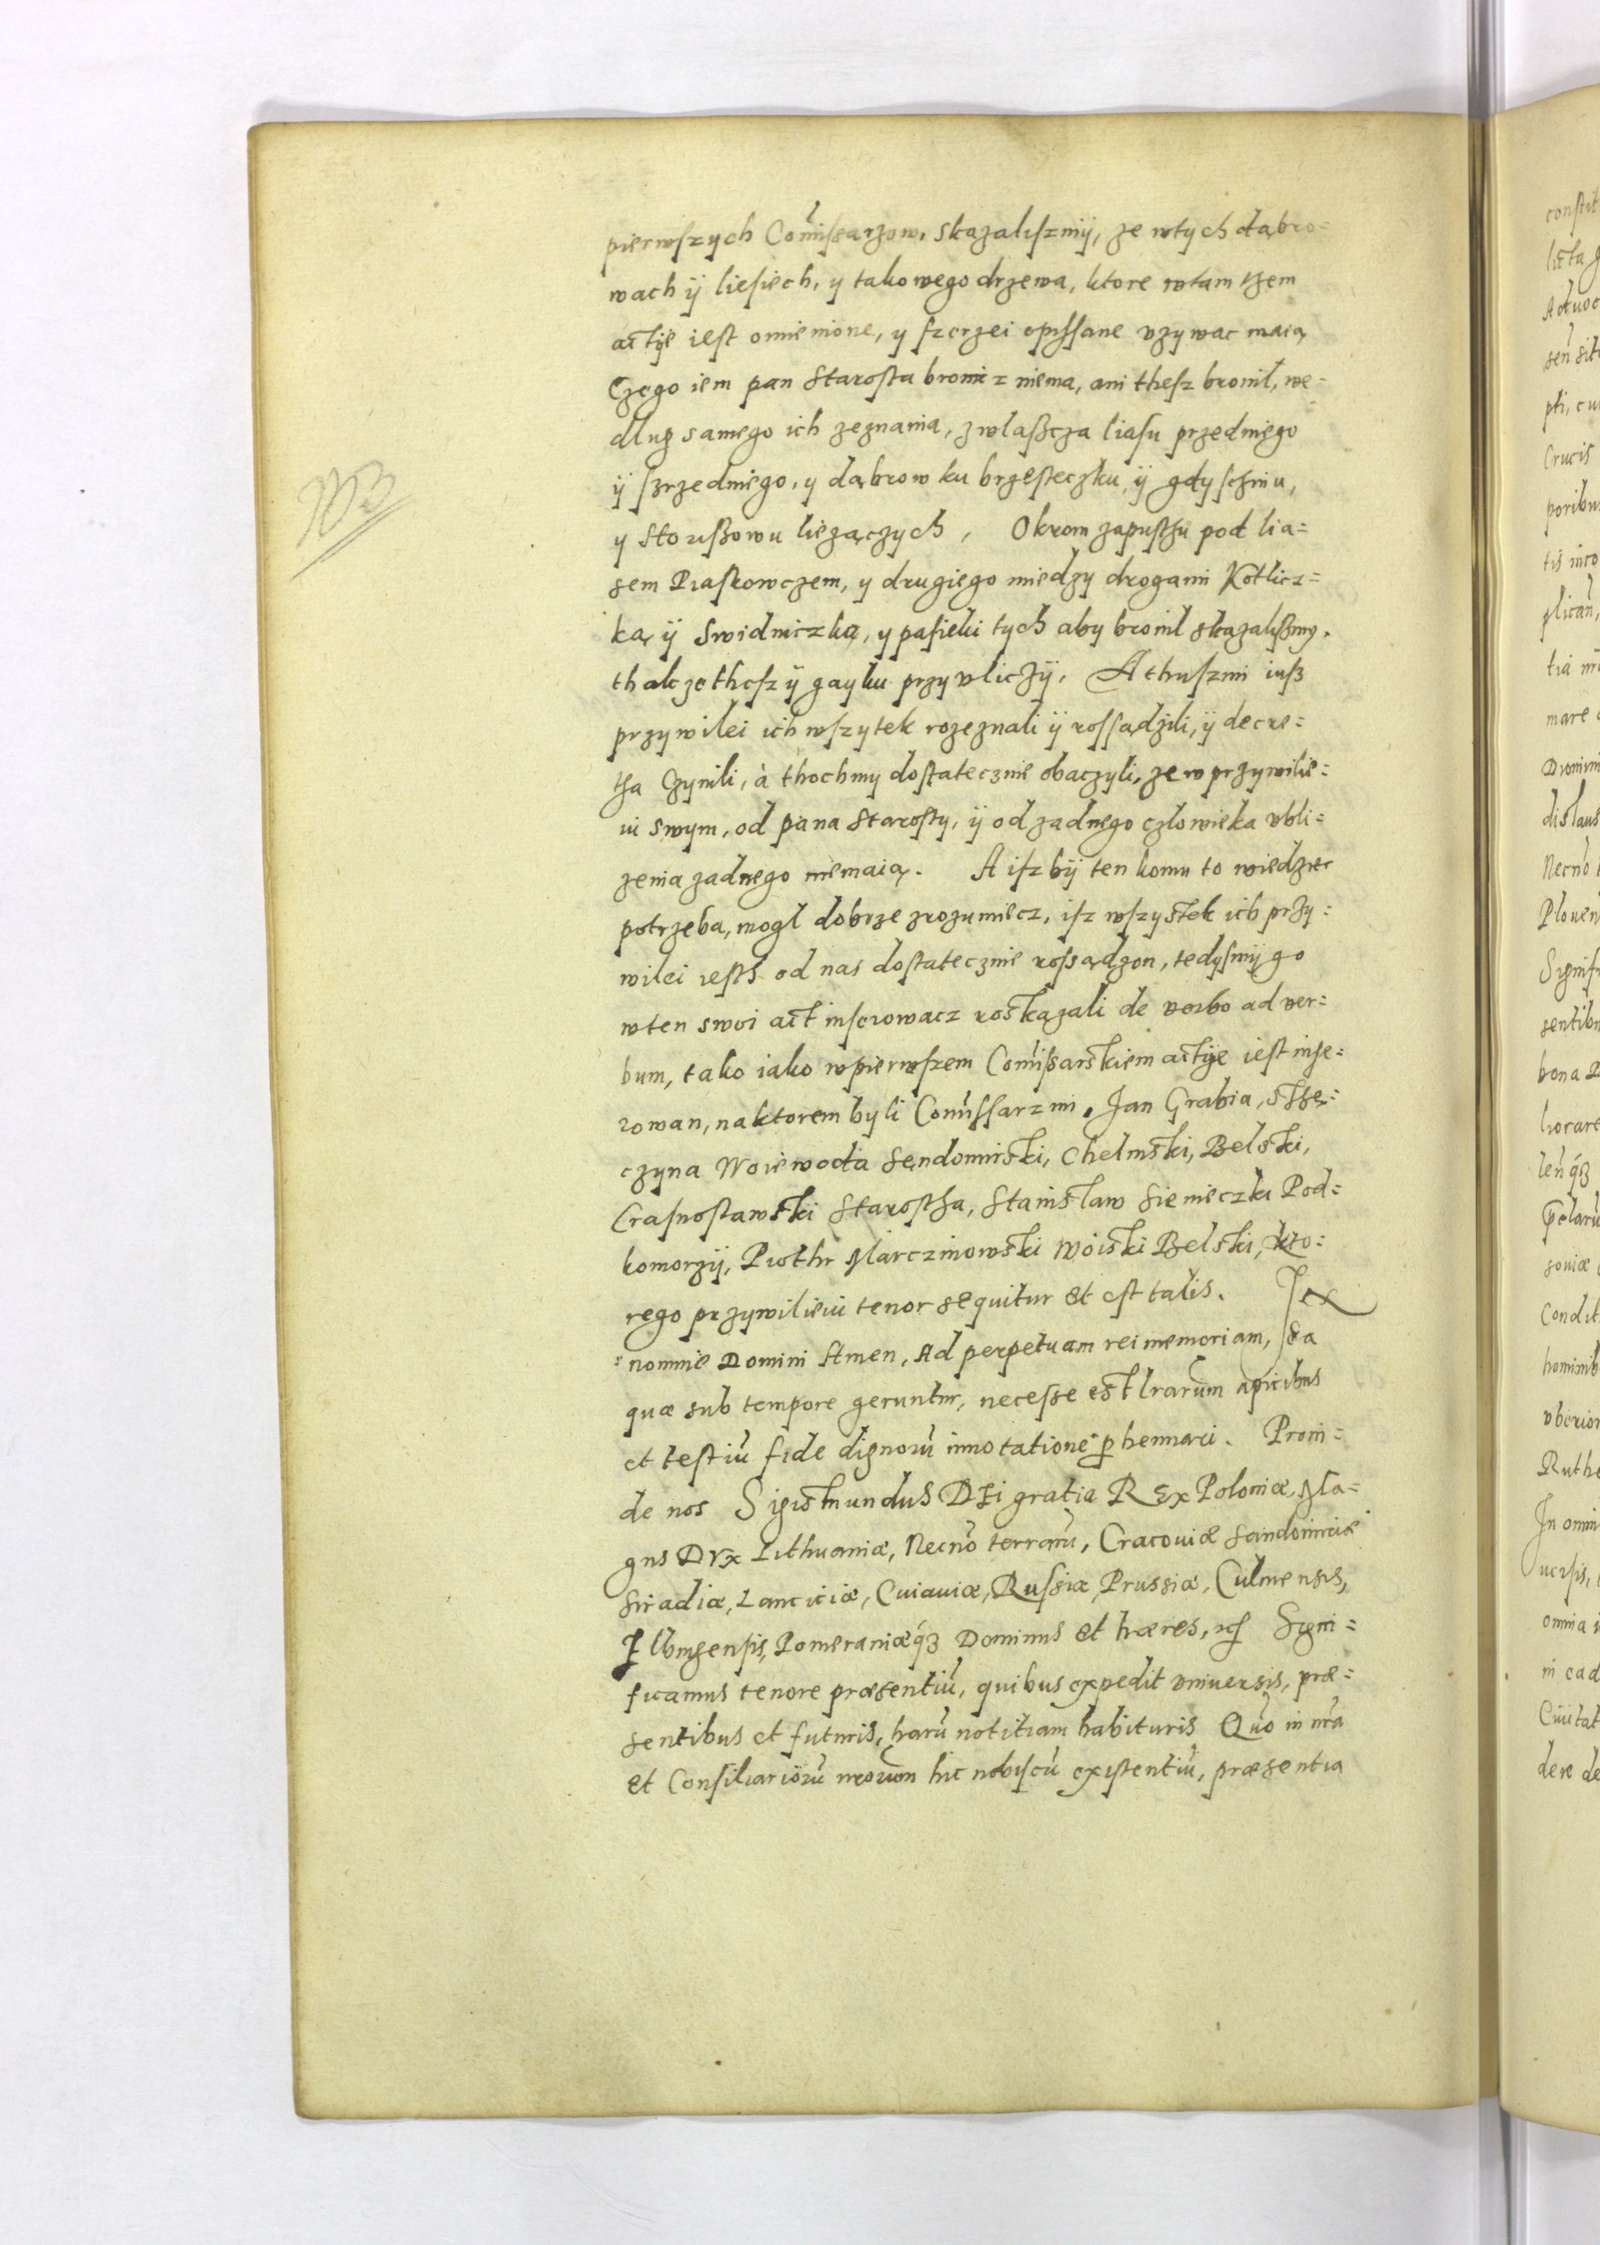 pierwszych Com̄issarzow, skazaliszmÿ, ze wtych dąbro=
wach ÿ liesiech, y takowego drzewa, ktore wtam tzem
actÿe iest omienione, y szerzei opissane vzywac maią
Czego iem pan Starosta bronicz niema, ani thesz bronil, we=
dlug samego ich zeznania, zwlaszcza liasu przedniego
ÿ szrzedniego, y dąbrow ku brzesteczku, ÿ gdyschinu,
y Storuszowu liezączych, Okrom zapustzu pod lia=
sem Piaskowczem, y drugiego miedzy drogami Kotlicz=
ką ÿ Swidniczką, y pasieki tych aby bronil skazaliszmy.
thakze thesz ÿ gayku przy vliczÿ, A thuszmi iusz
przywilei ich wszytek rozeznali ÿ rossądzili, ÿ decre=
tha Czynili, à thochmy dostatecznie obaczyli, ze w przywilie=
iu swym, od pana Starosty, ÿ od zadnego czlowieka vbli=
zenia zadnego niemaią. A isz bÿ ten komu to wiedziec
potrzeba, mogl dobrze zrozumiecz, isz wszystek ich przy=
wilei iesth od nas dostatecznie rossądzon, tedysmÿ go
wten swoi act inserowacz roskazali de verbo ad ver=
bum, tako iako wpierwszem Com̄isarskiem actÿe iest inse=
rowan, na ktorem byli Com̄issarzmi, Jan Grabia, sthę=
czyna Woiewoda Sendomirski, Chelmski, Belski,
Crasnostawski Starostha, Stanislaw Sienieczki Pod=
komorzÿ, Piothr Marczinowski Woiski Belski, kto=
rego przywilieiu tenor sequitur et est talis. In
nomine Domini Amen, Ad perpetuam rei memoriam, Ea
quæ sub tempore geruntur, necesse est lrarum apicibus
et testiū fide dignorū innotatione phennari. Proin=
de nos Sigismundus DEi gratia REx Poloniæ, Ma=
gnus DVx Lithuaniæ, Necnō terrarū, Cracouiæ Sandomiriæ
Siradiæ, Lanciciæ, Cuiauiæ, Russiæ, Prussiæ, Culmensis,
Elbingensis, Pomeraniæq́ꝫ Dominus et hæres, Signi=
ficamus tenore præsentiū, quibus expedit vniuersis, præ=
sentibus et futuris, harū notitiam habituris Quō in nr̄a
et Consiliariorū nrorum hic nobiscū existentiū, præsentia